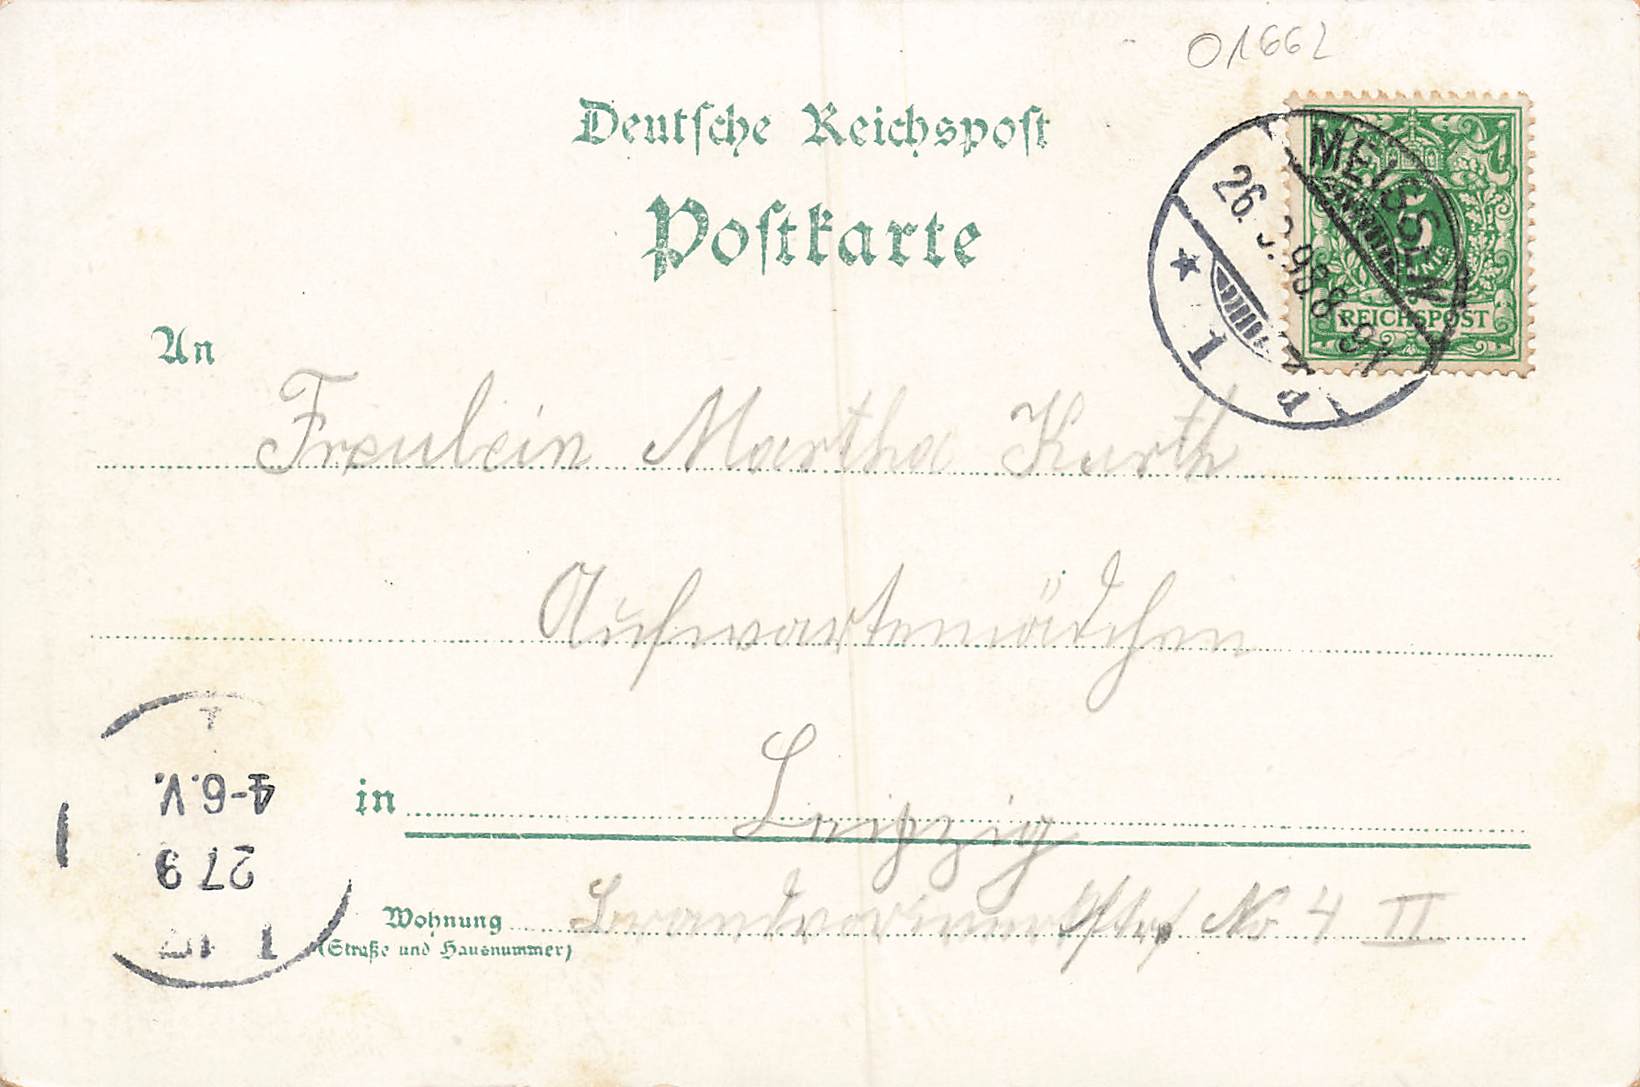 01662
Deutsche Reichspost
Postkarte
MEISSEN
26. 9. 98. 8-9 V.
* 1
REICHSPOST
An
Freulein Martha Kurth
Aufwartemädchen
in Leipzig
Wohnung
(Straße und Hausnummer)
No 4 II
4-6.V.
27 9
1